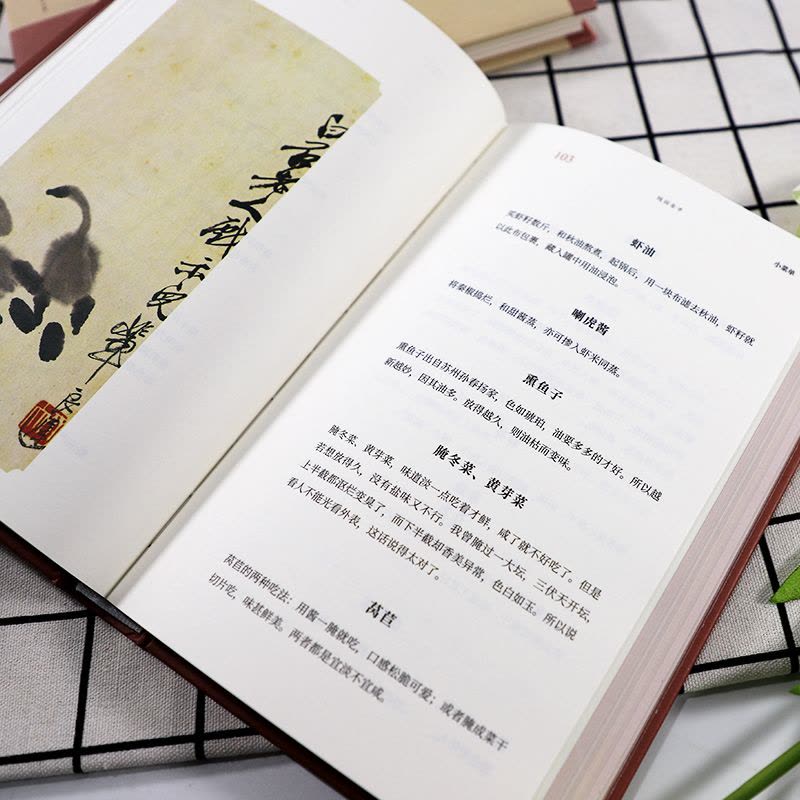 103
随园食单
小菜单
虾油
买虾籽数斤，和秋油熬煮，起锅后，用一块布滤去秋油，虾籽就
以此布包裹，藏入罐中用油浸泡。
喇虎酱
将秦椒捣烂，和甜酱蒸，亦可掺入虾米同蒸。
熏鱼子
熏鱼子出自苏州孙春杨家，色如琥珀，油要多多的才好。所以越
新越妙，因其油多。放得越久，则油枯而变味。
腌冬菜、黄芽菜
腌冬菜、黄芽菜，味道淡一点吃着才鲜，咸了就不好吃了。但是
若想放得久，没有盐味又不行。我曾腌过一大坛，三伏天开坛，
上半截都沤烂变臭了，而下半截却香美异常，色白如玉。所以说
看人不能光看外表，这话说得太对了。
莴苣
莴苣的两种吃法：用酱一腌就吃，口感松脆可爱；或者腌成菜干
切片吃，味甚鲜美。两者都是宜淡不宜咸。